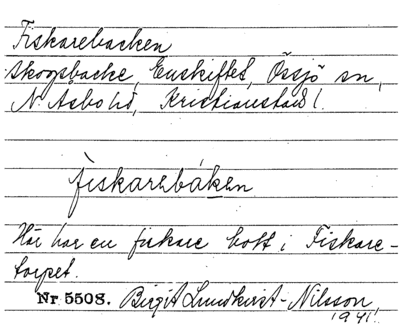 Fiskarebacken
Skogsbacke, Enskiftet, Össjö sn,
N. Åsbo hd, Kristianstads l.
fiskarebáken
Här har en fiskare bott i Fiskare-
torpet.
Nr 5508. Birgit Lundkvist-Nilsson
1941.